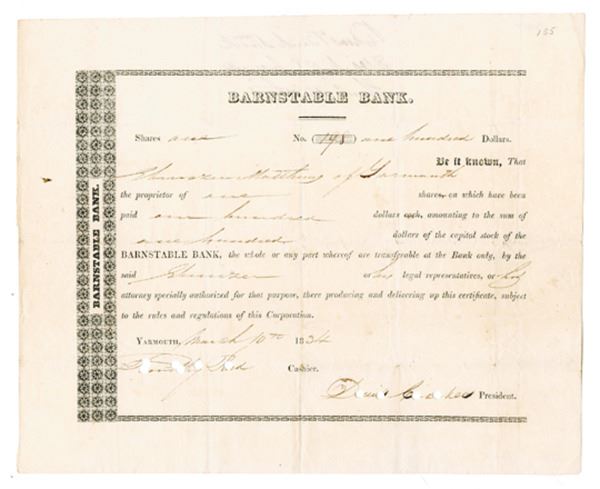 135
BARNSTABLE BANK.
Shares one No. 191 one hundred Dollars.
Be it known, That
Ebenezer Matthews of Yarmouth
the proprietor of one shares, on which have been
paid one hundred dollars each, amounting to the sum of
one hundred dollars of the capital stock of the
BARNSTABLE BANK, the whole or any part whereof are transferable at the Bank only, by the
said Ebenezer or by legal representatives, or by
attorney specially authorized for that purpose, there producing and delivering up this certificate, subject
to the rules and regulations of this Corporation.
YARMOUTH, March 10th 1834
Cashier.
President.
BARNSTABLE BANK.